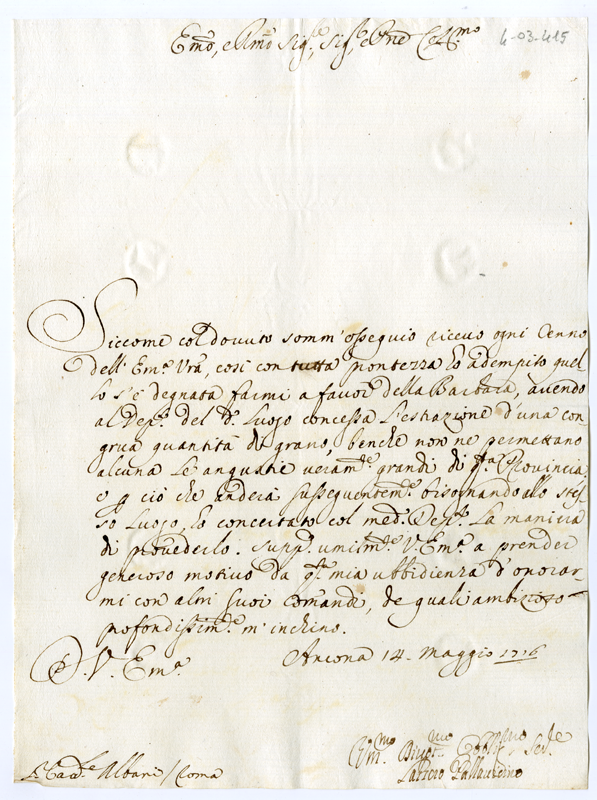 Emo, e Rmo Sigre, Sigre e Pne Colmo
4-03-415
Siccome col dovuto somm' ossequio ricevo ogni Cenno
dell' Ema Vra, così con tutta prontezza hò adempito quel
lo s'è degnata farmi a favore della Barbara, avendo
al Depo. del do. Luogo concessa l'estrazione d'una con
grua quantità di grano, benche non ne permettano
alcuna le angustie veramte grandi di qta Provincia
e p ciò che anderà sussequentemte bisognando allo stes
so Luogo, hò concertato col medo Depo. la maniera
di provederlo. Suppco umilmte V. Ema a prender
generoso motivo da qta mia ubbidienza d'onorar
mi con altri suoi comandi, de quali ambizioso
profondissimte m'inchino.
D. V. Ema
Ancona 14. Maggio 1716
Umo Divotmo Obblmo Serre
Pallavicino
Albani / Roma